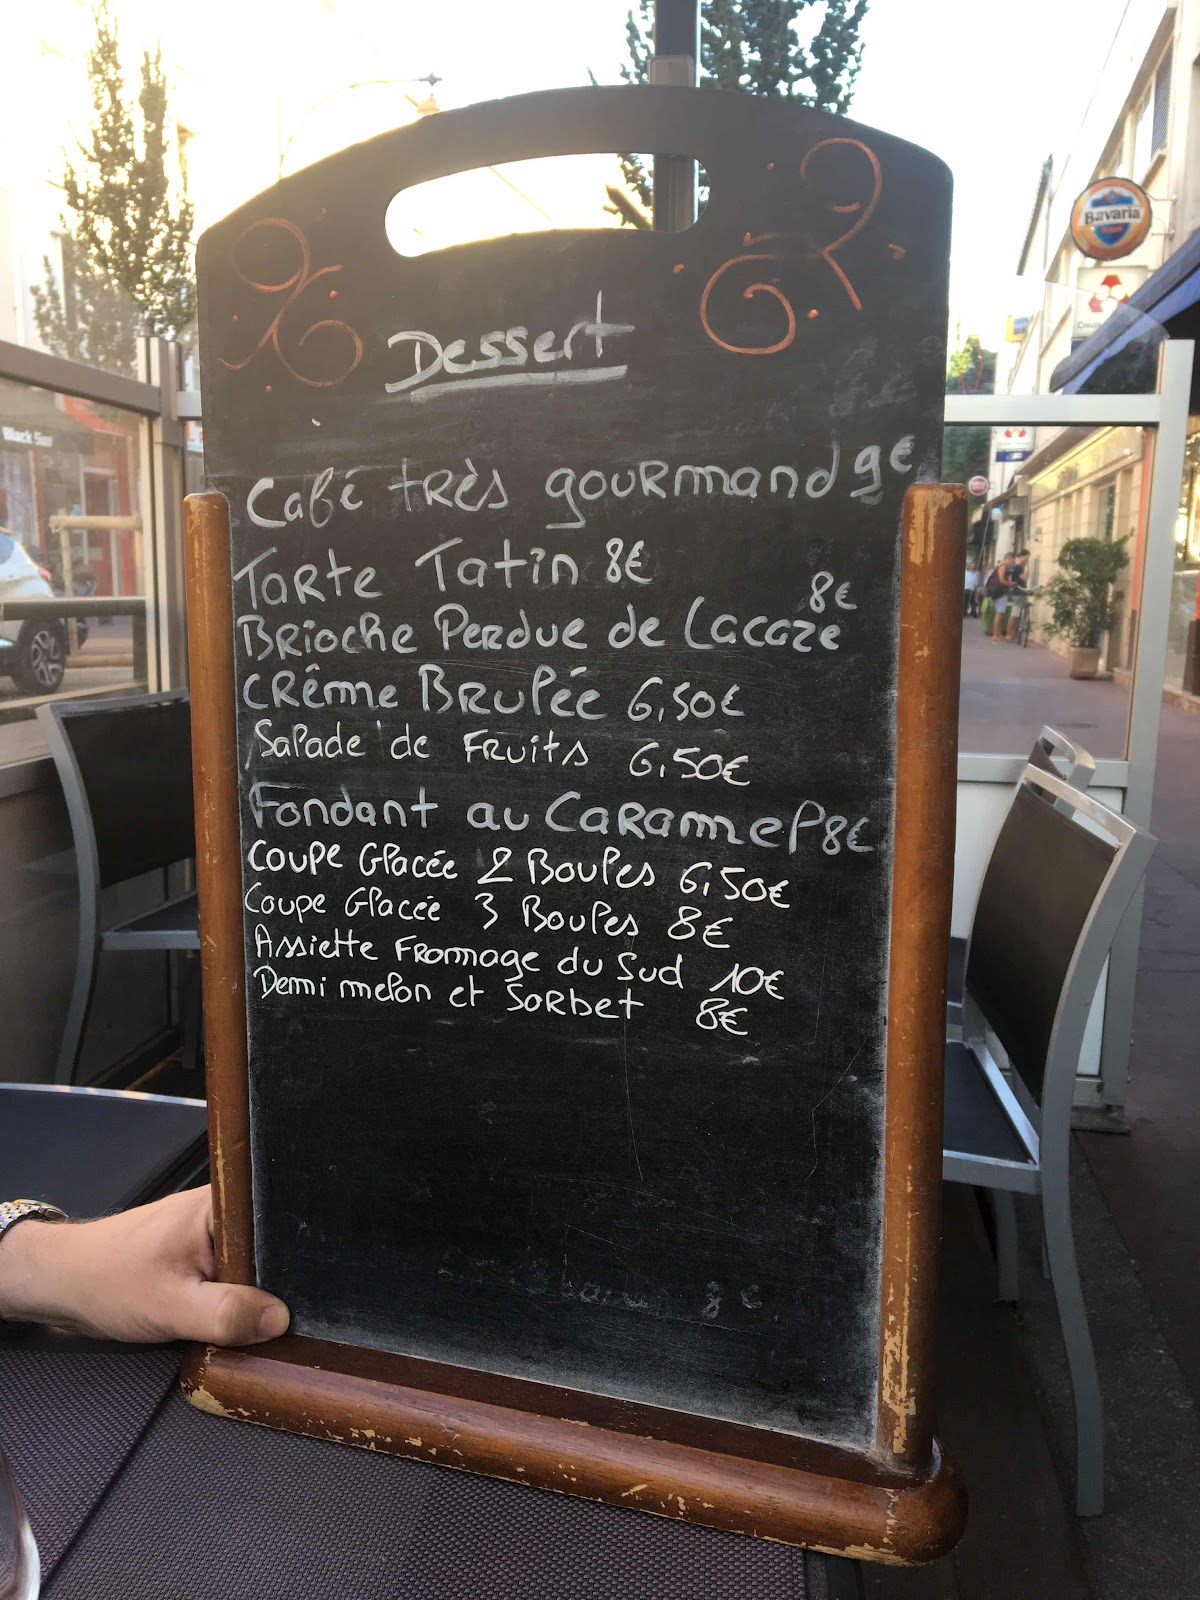 Dessert
Café très gourmand 9€
Tarte Tatin 8€
8€
Brioche Perdue de Lacaze
Crême Brulée 6,50€
Salade de Fruits 6,50€
Fondant au Caramel 8€
Coupe Glacée 2 Boules 6,50€
Coupe Glacée 3 Boules 8€
Assiette Fromage du Sud 10€
Demi melon et Sorbet 8€
Bavaria